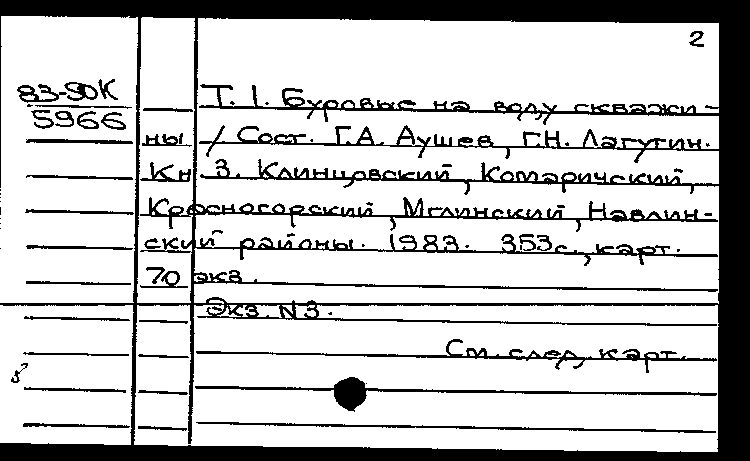 2
83-50К
5966
Т. 1. Буровые на воду скважи-
ны / Сост. Г.А. Аушев, Г.Н. Лагутин.
Кн 3. Клинцовский, Комаричский,
Красногорский, Мглинский, Навлин-
ский районы. 1983. 353с., карт.
70 экз.
Экз. N3.
См. след. карт.